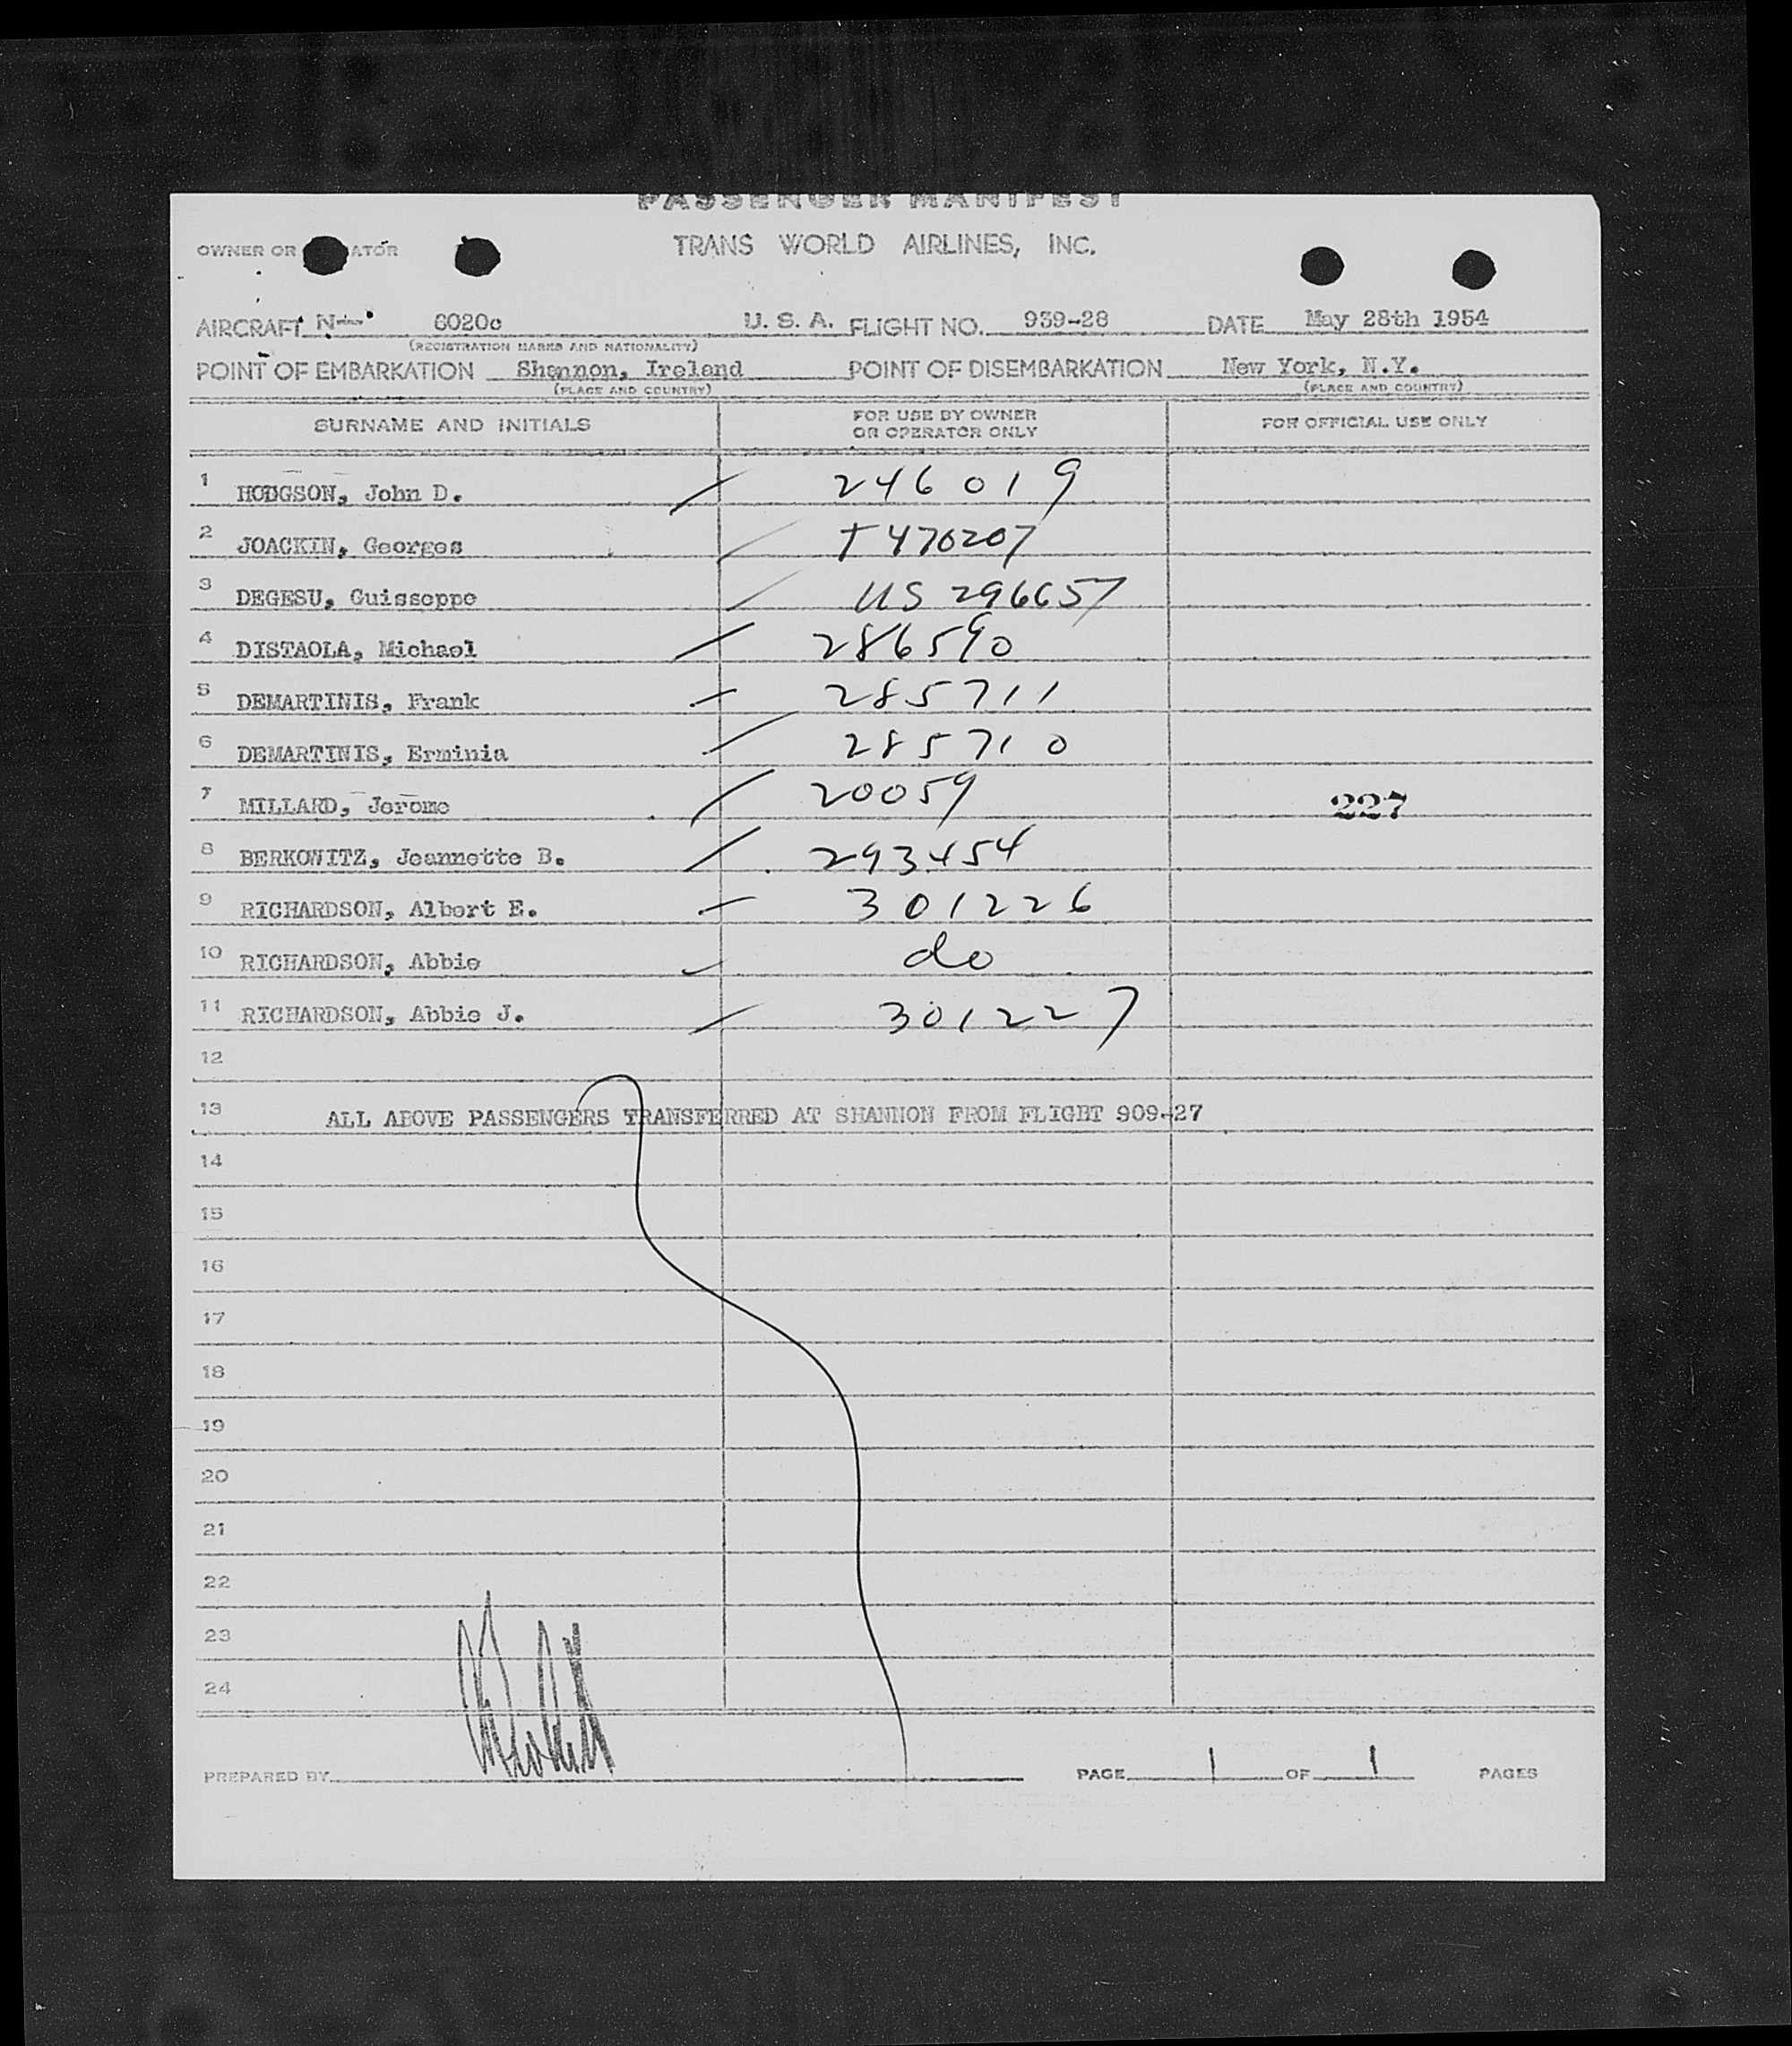 PASSENGER MANIFEST
OWNER OR ATOR TRANS WORLD AIRLINES, INC.
AIRCRAFT N— 6020c U. S. A. FLIGHT NO. 939-28 DATE May 28th 1954
(REGISTRATION MARKS AND NATIONALITY)
POINT OF EMBARKATION Shannon, Ireland POINT OF DISEMBARKATION New York, N.Y.
(PLACE AND COUNTRY) (PLACE AND COUNTRY)
SURNAME AND INITIALS FOR USE BY OWNER OR OPERATOR ONLY FOR OFFICIAL USE ONLY
1 HODGSON, John D. 246019
2 JOACKIN, Georges T 470207
3 DEGESU, Guisseppe US 296657
4 DISTAOLA, Michael 286590
5 DEMARTINIS, Frank 285711
6 DEMARTINIS, Erminia 285710
7 MILLARD, Jerome 20059 227
8 BERKOWITZ, Jeannette B. 293454
9 RICHARDSON, Albert E. 301226
10 RICHARDSON, Abbie do
11 RICHARDSON, Abbie J. 301227
12
13 ALL ABOVE PASSENGERS TRANSFERRED AT SHANNON FROM FLIGHT 909-27
14
15
16
17
18
19
20
21
22
23
24
PREPARED BY PAGE 1 OF 1 PAGES